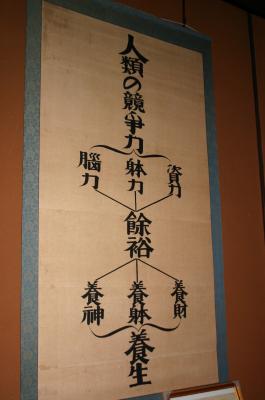 人類の競争力
資力
躰力
腦力
餘裕
養財
養躰
養神
養生